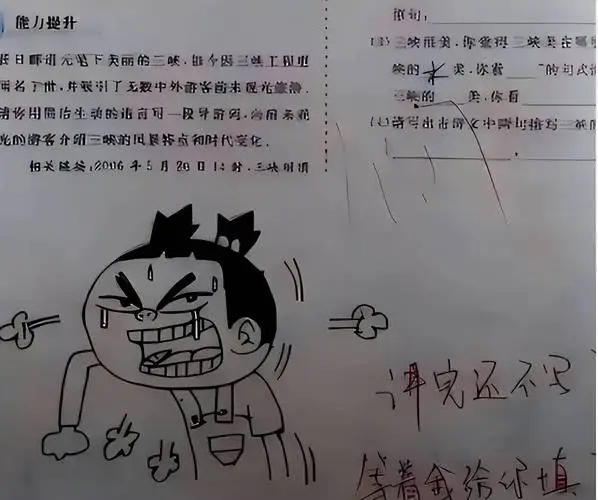 能力提升
日郦道元笔下美丽的三峡，如今因三峡工程更
名了世，并吸引了无数中外游客前来观光旅游。
请你用简洁生动的语言写一段导游词，向前来观
光的游客介绍三峡的风景特点和时代变化。
相关链接：2006年5月20日14时，三峡
理由：
(3)三峡很美，你觉得三峡美在哪
峡的水美，你看____"的句式
三峡的____美，你看
(4)请写出古诗文中两句描写三峡的
讲完还不写
等着我给你填